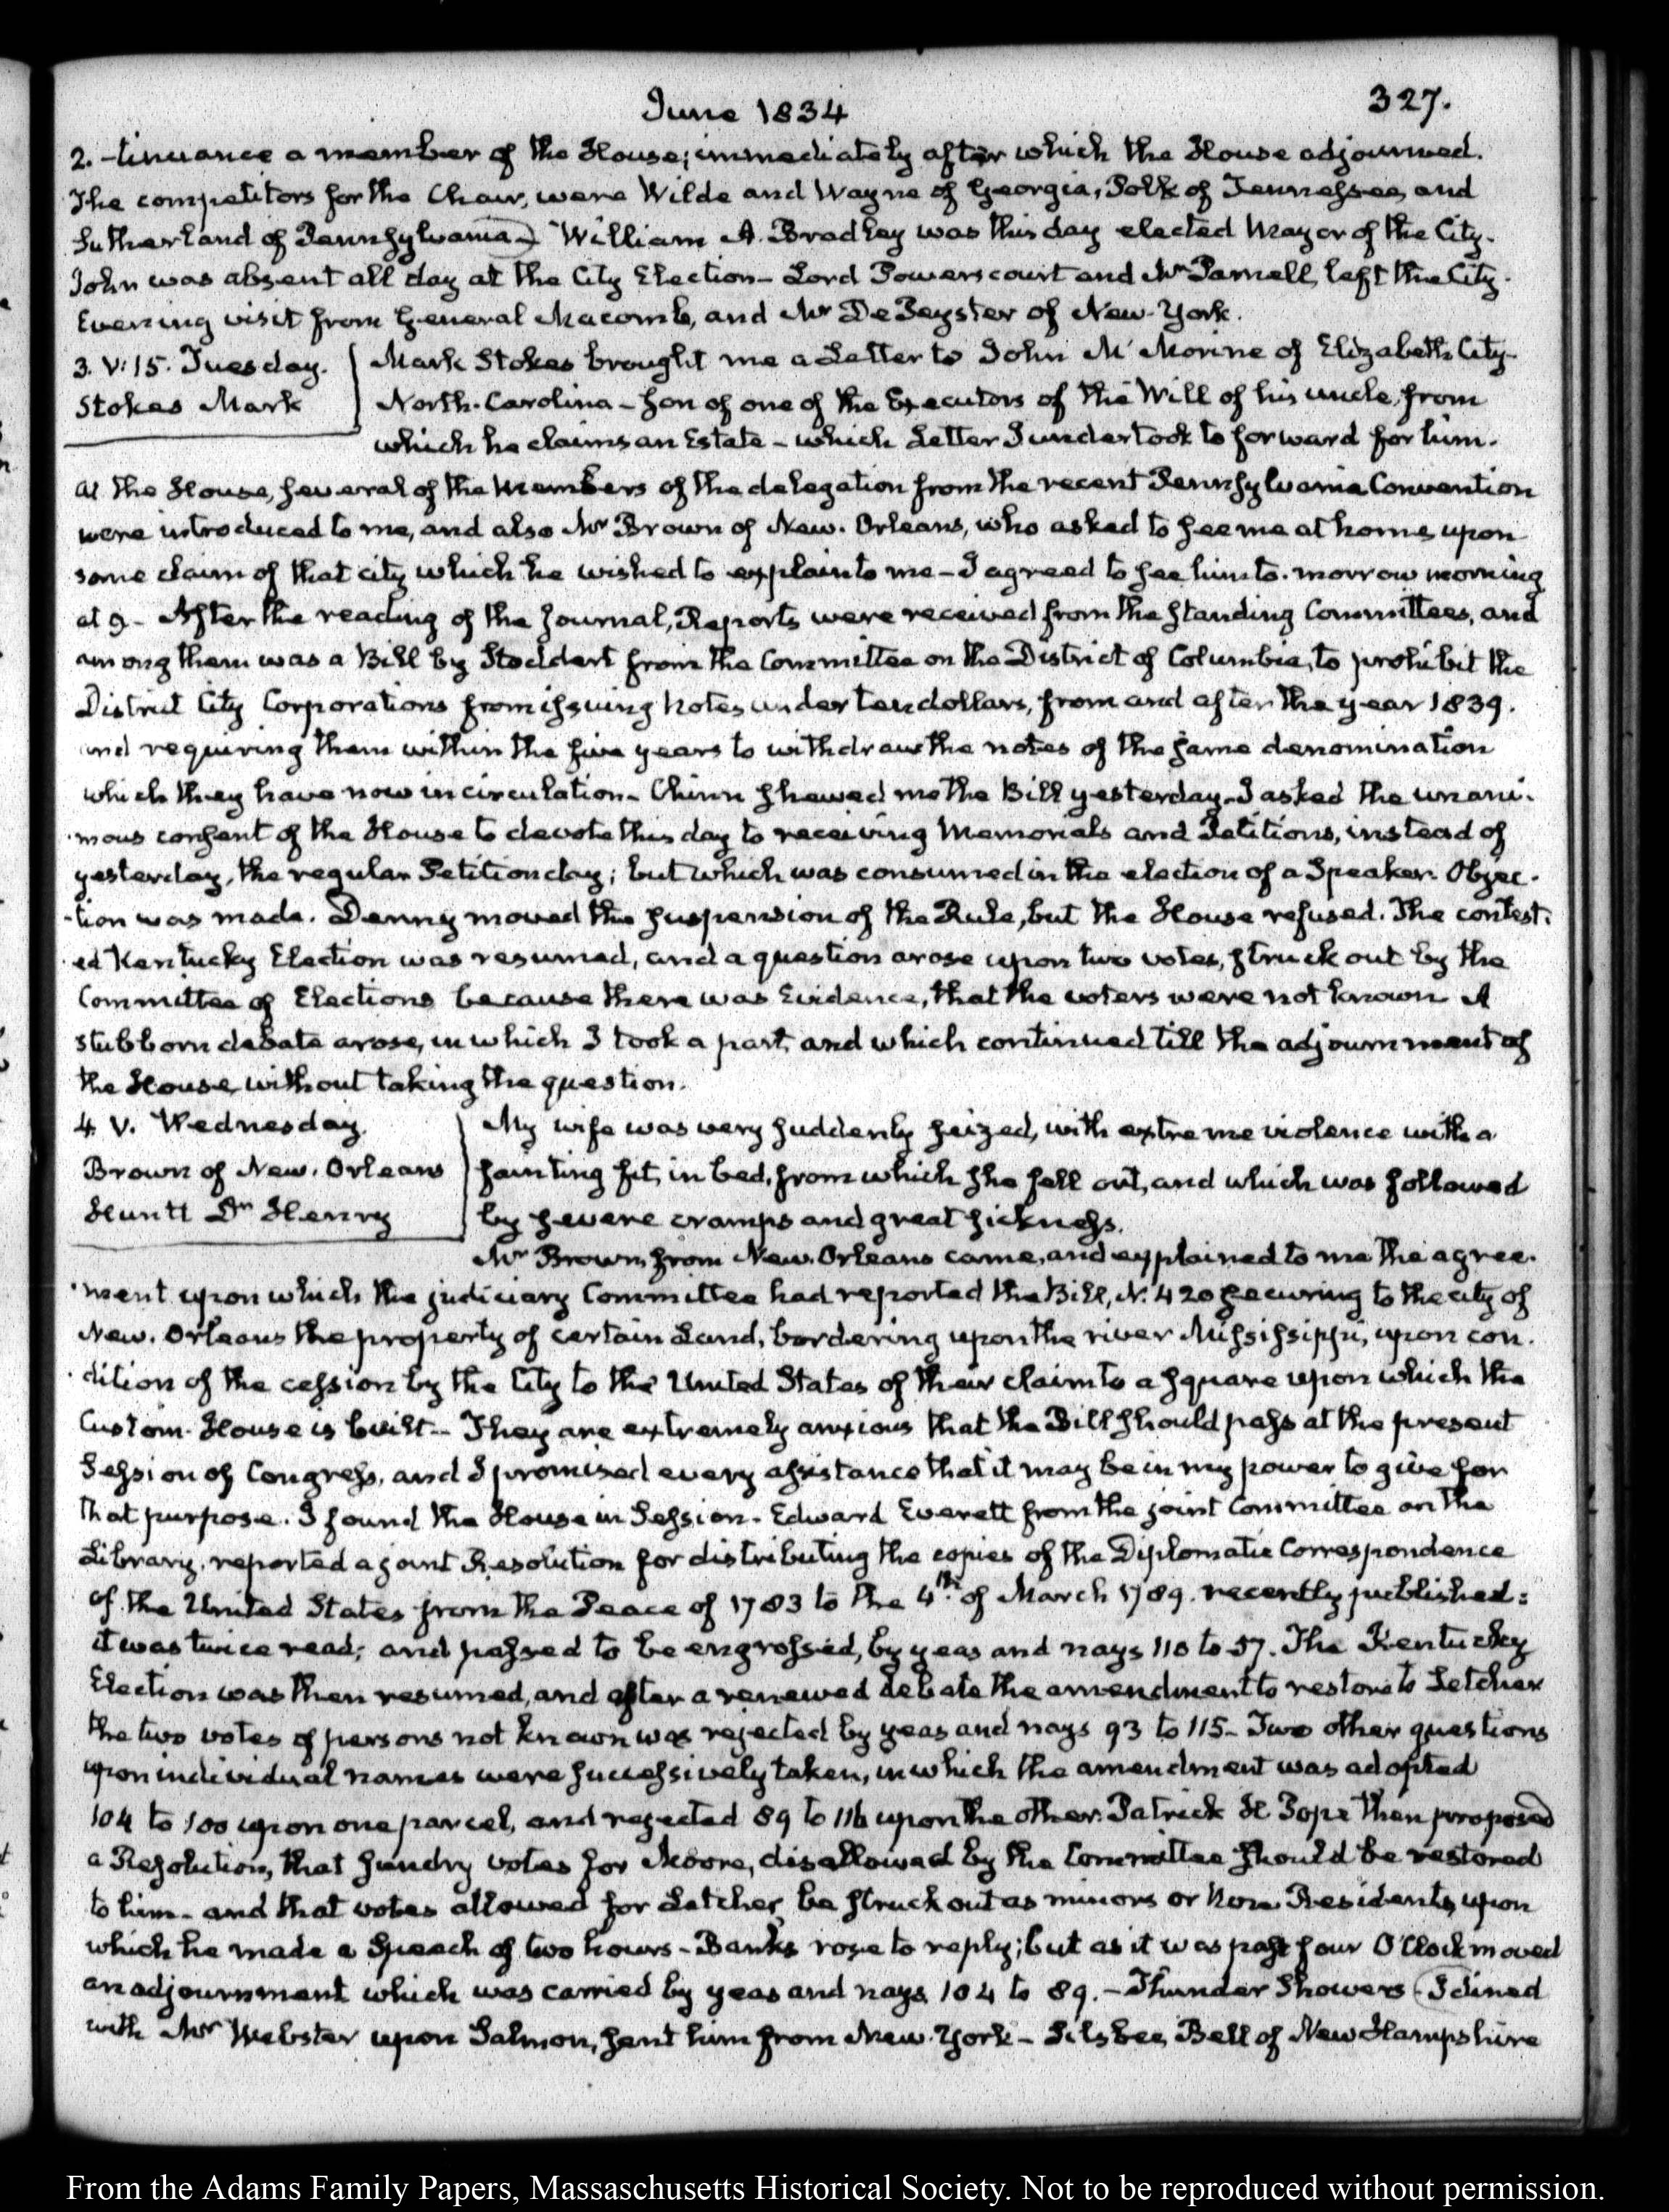 June 1834
327.
2. -tinuance a member of the House; immediately after which the House adjourned.
The competitors for the Chair, were Wilde and Wayne of Georgia, Polk of Tennessee, and
Sutherland of Pennsylvania) William A. Bradley was this day elected Mayor of the City.
John was absent all day at the City Election - Lord Powerscourt and Mr Parnell, left the City.
Evening visit from General Macomb, and Mr DePeyster of New-York.
3. V:15. Tuesday.
Stokes Mark
Mark Stokes brought me a Letter to John M'Morine of Elizabeth City
North-Carolina - Son of one of the Executors of the Will of his uncle, from
which he claims an Estate - which Letter I undertook to forward for him.
At the House, several of the Members of the delegation from the recent Pennsylvania Convention
were introduced to me, and also Mr Brown of New-Orleans, who asked to see me at home, upon
some claim of that city which he wished to explain to me - I agreed to see him to-morrow morning
at 9 - After the reading of the Journal, Reports were received from the standing Committees, and
among them was a Bill by Stoddert from the Committee on the District of Columbia, to prohibit the
District City Corporations from issuing Notes under ten dollars, from and after the year 1839.
and requiring them within the five years to withdraw the notes of the same denomination
which they have now in circulation - Chinn shewed me the Bill yesterday - I asked the unani-
-mous consent of the House to devote this day to receiving Memorials and Petitions, instead of
yesterday, the regular Petition day; but which was consumed in the election of a Speaker. Objec-
-tion was made. Denny moved the suspension of the Rule, but the House refused. The contest-
-ed Kentucky Election was resumed, and a question arose upon two votes, struck out by the
Committee of Elections because there was Evidence, that the voters were not known A
stubborn debate arose, in which I took a part, and which continued till the adjournment of
the House, without taking the question.
4. V. Wednesday.
Brown of New-Orleans
Huntt Dr Henry
My wife was very suddenly seized, with extreme violence with a
fainting fit, in bed, from which she fell out, and which was followed
by severe cramps and great sickness.
Mr Brown, from New-Orleans came, and explained to me the agree-
-ment upon which the judiciary Committee had reported the Bill, N. 420 securing to the city of
New-Orleans the property of certain Land, bordering upon the river Mississippi, upon con-
-dition of the cession by the City to the United States of their claim to a square upon which the
Custom-House is built -- They are extremely anxious that the Bill should pass at the present
Session of Congress, and I promised every assistance that it may be in my power to give for
that purpose. I found the House in Session - Edward Everett from the joint Committee on the
Library, reported a joint Resolution for distributing the copies of the Diplomatic Correspondence
of the United States from the Peace of 1783 to the 4th of March 1789. recently published:
it was twice read; and passed to be engrossed, by yeas and nays 110 to 57. The Kentucky
Election was then resumed, and after a renewed debate the amendment to restore to Letcher
the two votes of persons not known was rejected by yeas and nays 93 to 115 - Two other questions
upon individual names were successively taken, in which the amendment was adopted
104 to 100 upon one parcel, and rejected 89 to 116 upon the other. Patrick H Pope then proposed
a Resolution, that sundry votes for Moore, disallowed by the Committee should be restored
to him - and that votes allowed for Letcher, be struck out as minors or Non Residents, upon
which he made a Speech of two hours - Banks rose to reply; but as it was past four O'Clock moved
an adjournment which was carried by yeas and nays 104 to 89. - Thunder Showers (I dined
with Mr Webster upon Salmon, sent him from New-York - Silsbee, Bell of New Hampshire
From the Adams Family Papers, Massachusetts Historical Society. Not to be reproduced without permission.